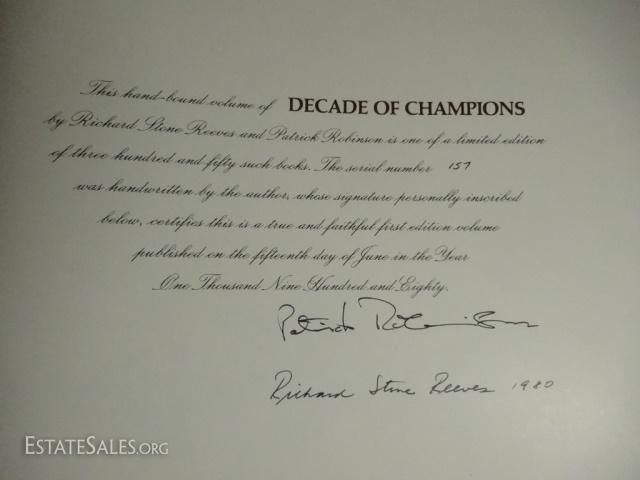 This hand-bound volume of DECADE OF CHAMPIONS
by Richard Stone Reeves and Patrick Robinson is one of a limited edition
of three hundred and fifty such books. The serial number 157
was handwritten by the author, whose signature personally inscribed
below, certifies this is a true and faithful first edition volume
published on the fifteenth day of June in the Year
One Thousand Nine Hundred and Eighty.
Patrick Robinson
Richard Stone Reeves 1980
ESTATESALES.ORG